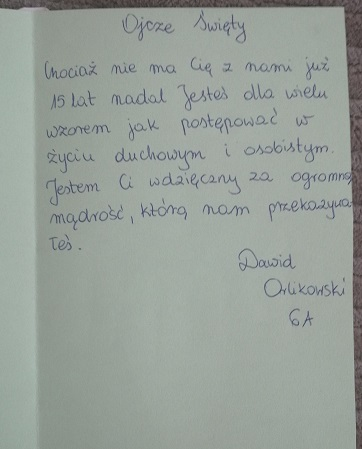 Ojcze Święty
Chociaż nie ma Cię z nami już
15 lat nadal Jesteś dla wielu
wzorem jak postępować w
życiu duchowym i osobistym.
Jestem Ci wdzięczny za ogromną
mądrość, którą nam przekazywa-
łeś.
Dawid
Orlikowski
6A